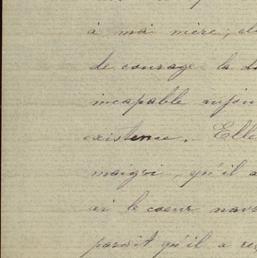 à ma mère, al
de courage la do
incapable aujou
existence. Elle
maigri, qu'il a
ai le coeur navr
parait qu'il a re